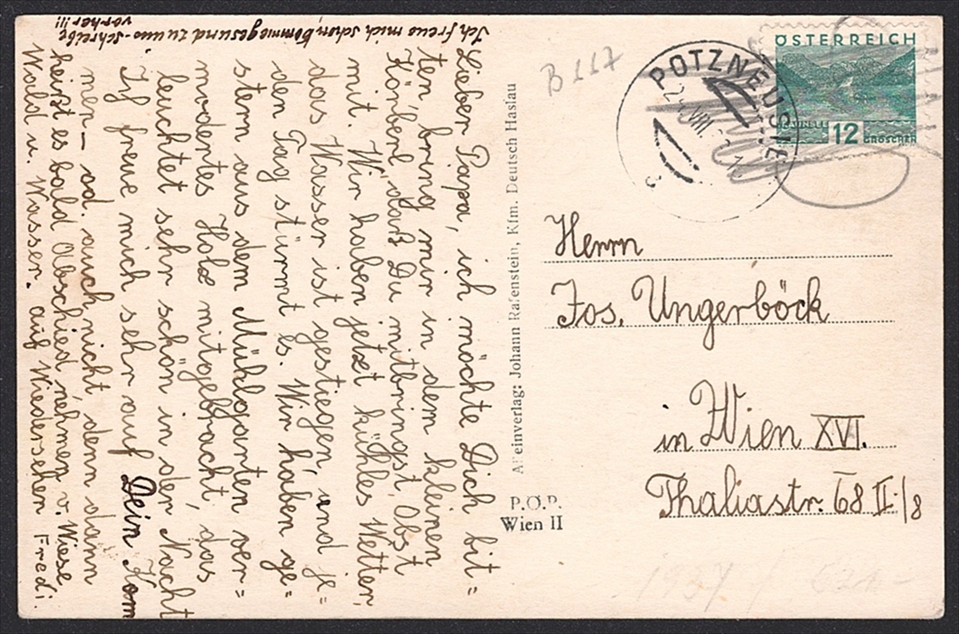 Ich freue mich schon, komme gesund zu uns - schreibe
vorher!!!
Lieber Papa, ich möchte Dich bit=
ten, bring mir in dem kleinen
Körberl, daß Du mitbringst, Obst
mit. Wir haben jetzt kühles Wetter,
das Wasser ist gestiegen, und je=
den Tag stürmt es. Wir haben ge=
stern aus dem Mühlgarten ver=
modertes Holz mitgebracht, das
leuchtet sehr schön in der Nacht
Ich freue mich sehr auf Dein Kom
men - od. auch nicht, denn dann
heißt es bald Abschied nehmen v. Wiese
Wald u. Wasser. auf Wiedersehen Fredi.
Alleinverlag: Johann Rafenstein, Kfm. Deutsch Haslau
P.Ö.P.
Wien II
B 117
POTZNEUSIEDL
ÖSTERREICH
12
GROSCHEN
Herrn
Jos. Ungerböck
in Wien XVI.
Thaliastr. 68 II/8